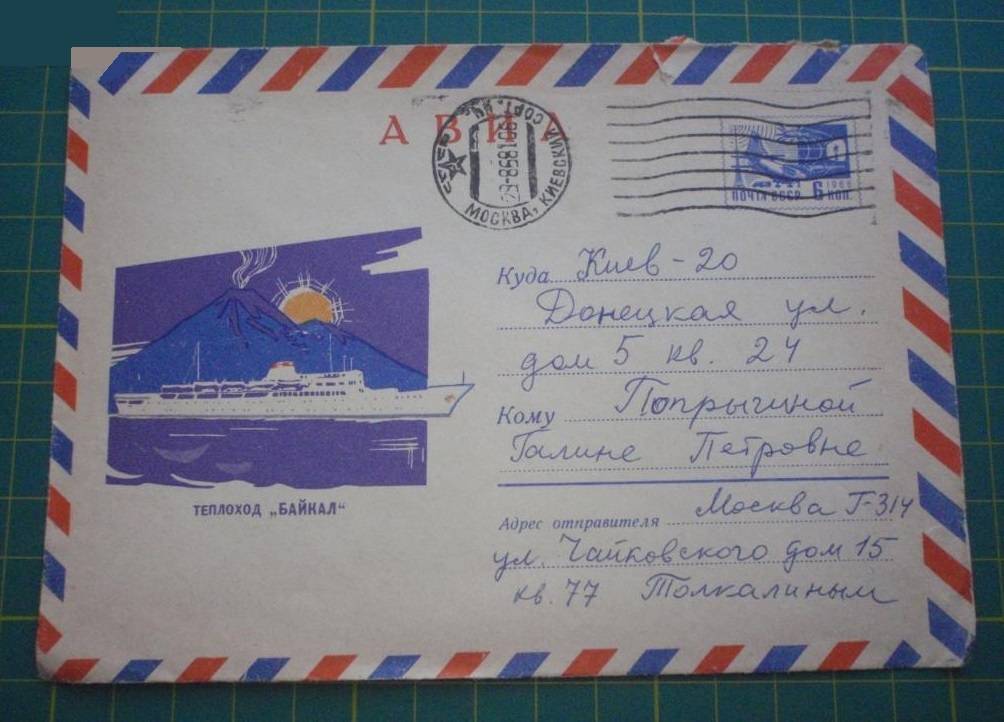 АВИА
МОСКВА, КИЕВСКИЙ СОРТ.
ПОЧТА СССР 6 КОП.
1966
Куда Киев - 20
Донецкая ул.
дом 5 кв. 24
Кому Попрыгиной
Галине Петровне
ТЕПЛОХОД „БАЙКАЛ“
Адрес отправителя Москва Г-314
ул. Чайковского дом 15
кв. 77 Толкалиным